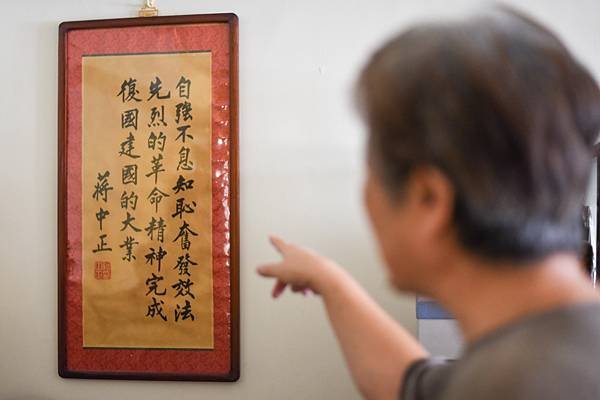 自強不息知恥奮發效法
先烈的革命精神完成
復國建國的大業
蔣中正